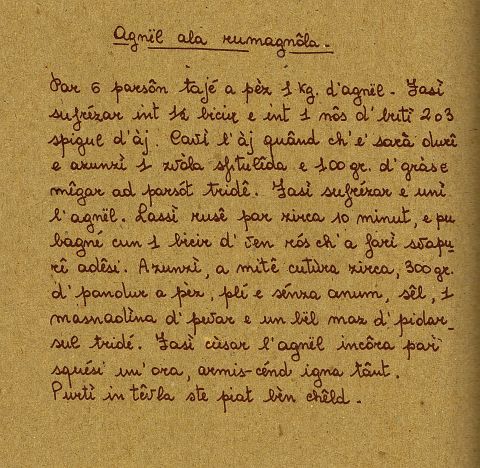 Agnël ala rumagnôla.
Par 6 parsôn tajé a pèz 1 Kg. d'agnël. Fasì
sufrézar int ½ bicir e int 1 nôs d'butì 2 o 3
spigul d'àj. Cavì l'àj quând ch'e' sarà durê
e azunzì 1 zvòla sftulîda e 100 gr. d'gràs e
mîgar ad parsót tridê. Fasì sufrézar e unì
l'agnël. Lassì rusê par zirca 10 minut, e pu
bagnê cun 1 bicir d'ven rós ch'a farì svapu_
rê adêsi. Azunzì, a mitê cutùra zirca, 300 gr.
d'pandur a pèz, plé e sénza anum, sêl, 1
masnadìna d'pevar e un bël maz d'pidar_
sul tridé. Fasì cùsar l'agnël incôra par
squési un'ora, armis-cénd igna tânt.
Purtì in têvla ste piat bèn chêld.